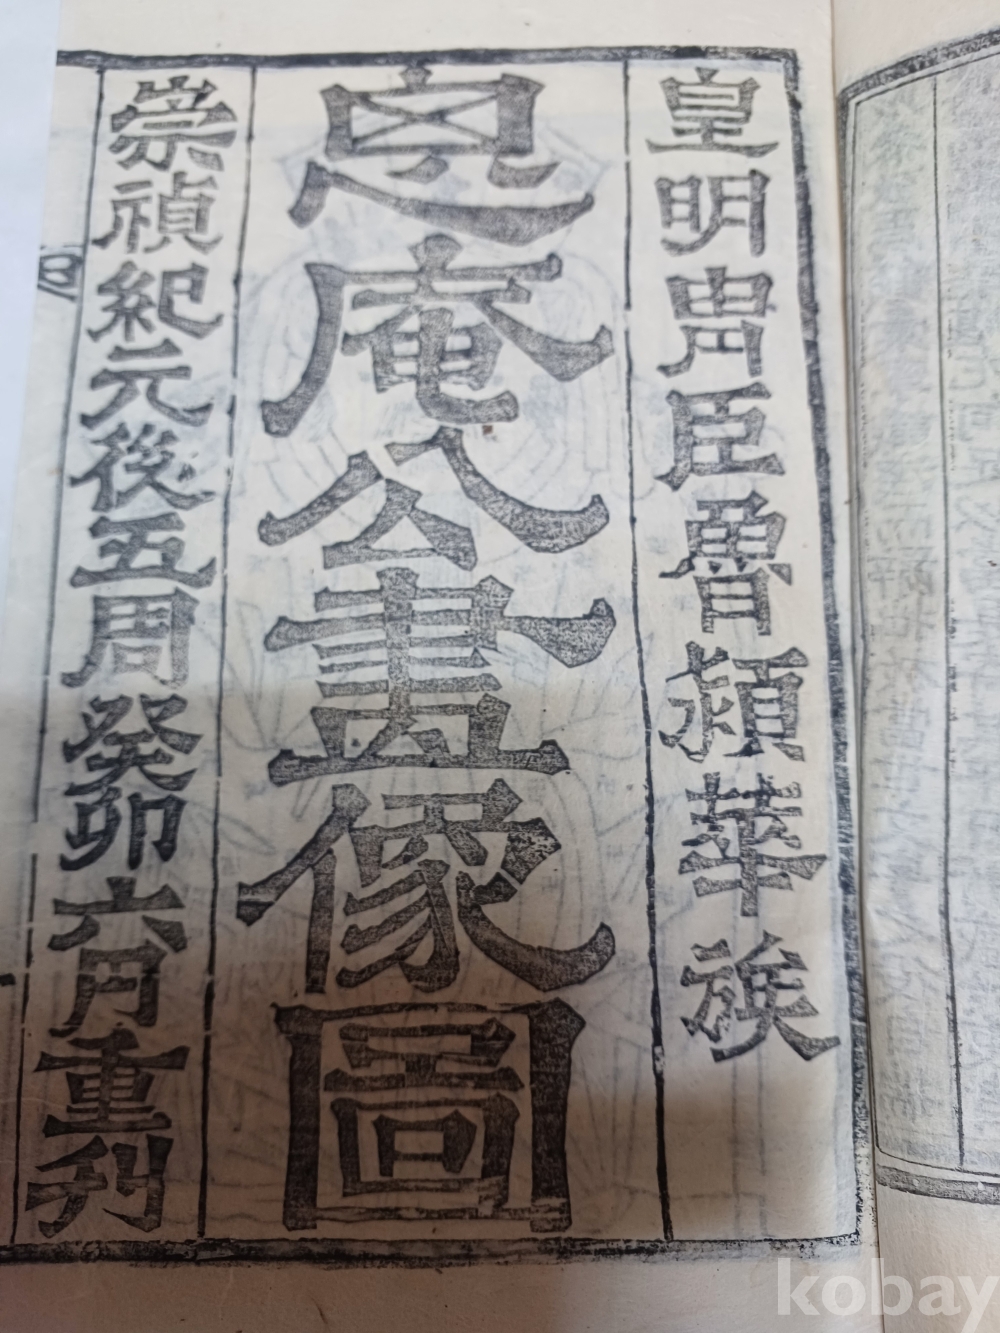 皇明冑臣魯潁華族
恖庵公畫像圖
崇禎紀元後五周癸卯六月重刊
kobay